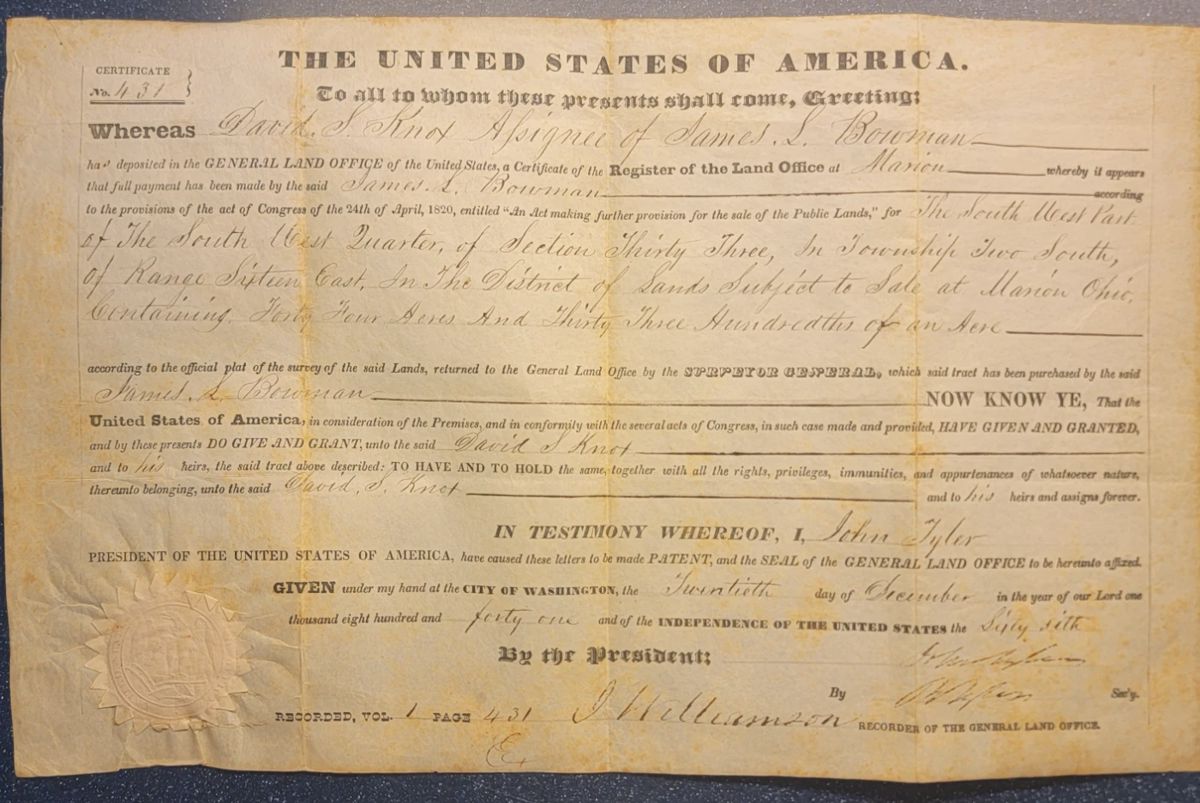 THE UNITED STATES OF AMERICA.
CERTIFICATE
No. 431
To all to whom these presents shall come, Greeting:
Whereas David. S. Knox Assignee of James. L. Bowman
has deposited in the GENERAL LAND OFFICE of the United States, a Certificate of the Register of the Land Office at Marion whereby it appears
that full payment has been made by the said James. L. Bowman according
to the provisions of the act of Congress of the 24th of April, 1820, entitled "An Act making further provision for the sale of the Public Lands," for The South West Part
of The South West Quarter, of Section Thirty Three, In Township Two South,
of Range Sixteen East, In The District of Lands Subject to Sale at Marion Ohio,
Containing. Forty Four Acres And Thirty Three Hundredths of an Acre
according to the official plat of the survey of the said Lands, returned to the General Land Office by the SURVEYOR GENERAL, which said tract has been purchased by the said
James L. Bowman NOW KNOW YE, That the
United States of America, in consideration of the Premises, and in conformity with the several acts of Congress, in such case made and provided, HAVE GIVEN AND GRANTED,
and by these presents DO GIVE AND GRANT, unto the said David S Knox
and to his heirs, the said tract above described: TO HAVE AND TO HOLD the same, together with all the rights, privileges, immunities, and appurtenances of whatsoever nature,
thereunto belonging, unto the said David, S. Knox and to his heirs and assigns forever.
IN TESTIMONY WHEREOF, I, John Tyler
PRESIDENT OF THE UNITED STATES OF AMERICA, have caused these letters to be made PATENT, and the SEAL of the GENERAL LAND OFFICE to be hereunto affixed.
GIVEN under my hand at the CITY OF WASHINGTON, the Twentieth day of December in the year of our Lord one
thousand eight hundred and forty one and of the INDEPENDENCE OF THE UNITED STATES the Sixty sith
By the President: John Tyler
By Sec'y.
RECORDED, VOL. 1 PAGE 431 J Williamson RECORDER OF THE GENERAL LAND OFFICE.
E